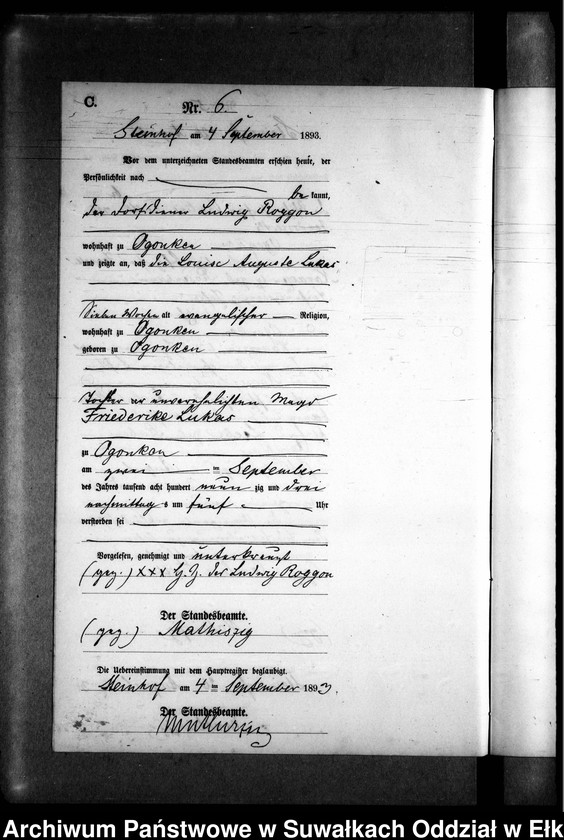 C.
Nr. 6.
Steinhof am 4 September 1893.
Vor dem unterzeichneten Standesbeamten erschien heute, der
Persönlichkeit nach
be kannt,
der Dorfdiener Ludwig Roggon
wohnhaft zu Ogonken
und zeigte an, daß die Louise Auguste Lukas
Sieben Wochen alt evangelischer Religion,
wohnhaft zu Ogonken
geboren zu Ogonken
Tochter der unverehelichten Magd
Friederike Lukas
zu Ogonken
am zwei ten September
des Jahres tausend acht hundert neun zig und drei
nachmittag s um fünf Uhr
verstorben sei
Vorgelesen, genehmigt und unterkreuzt
(gez.) XXX H. Z. des Ludwig Roggon
Der Standesbeamte.
(gez.) Mathiszig
Die Uebereinstimmung mit dem Hauptregister beglaubigt.
Steinhof am 4 ten September 1893.
Der Standesbeamte.
Archiwum Państwowe w Suwałkach Oddział w Ełk